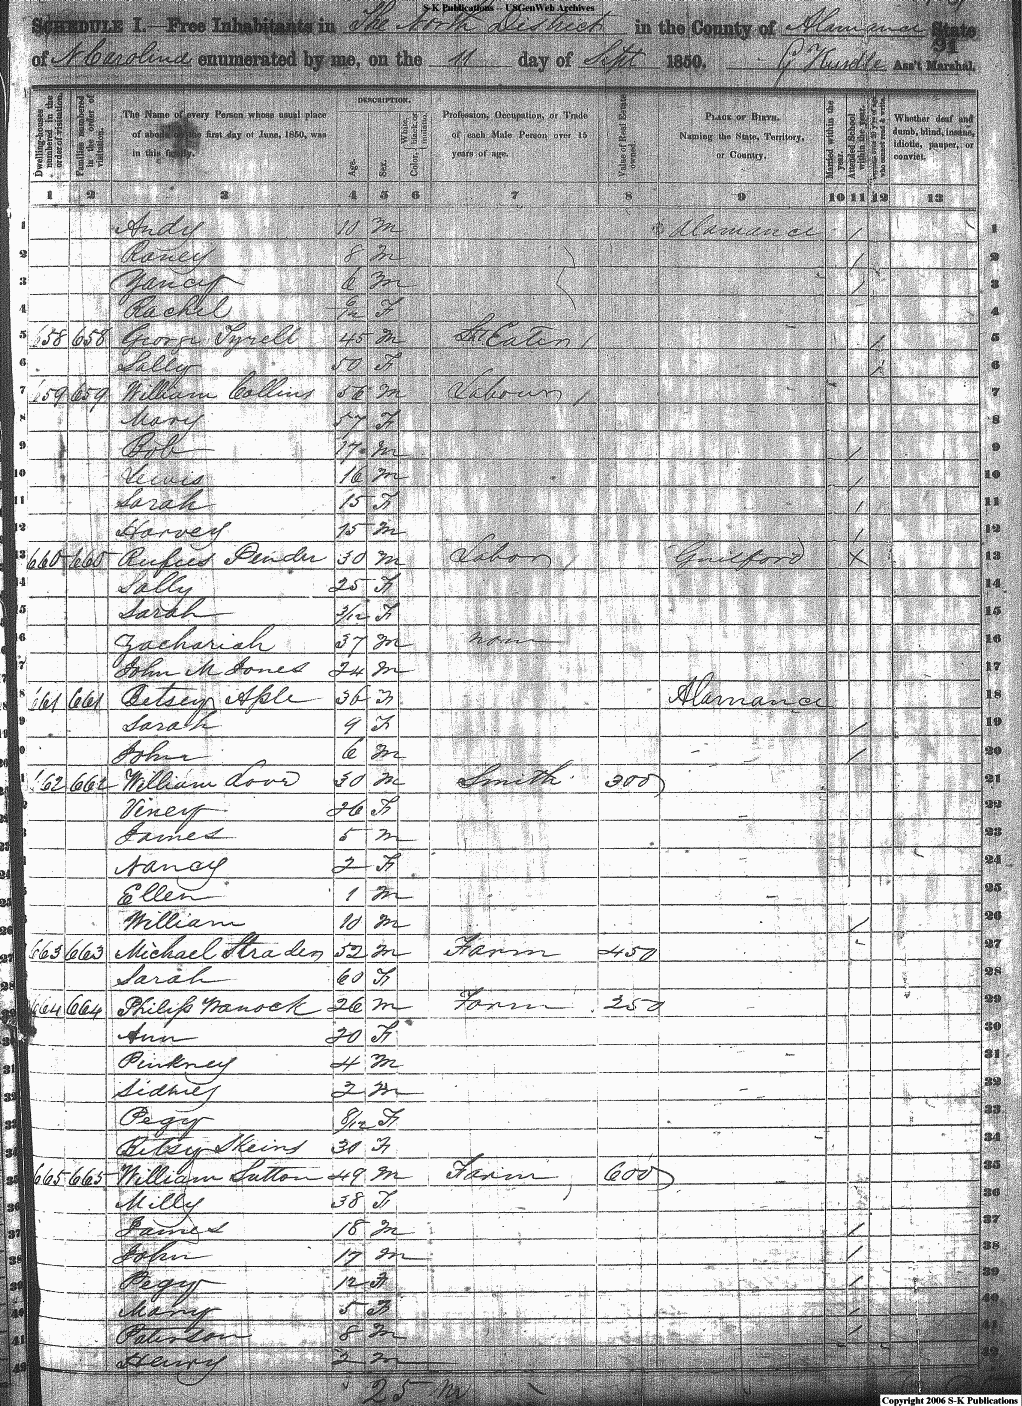 S-K Publications – USGenWeb Archives
SCHEDULE I.—Free Inhabitants in The North District in the County of Alamance State
of N Carolina enumerated by me, on the 11 day of Sept 1850. G Hurdle Ass't Marshal.
91
Dwelling-houses numbered in the order of visitation.
Families numbered in the order of visitation.
The Name of every Person whose usual place of abode on the first day of June, 1850, was in this family.
DESCRIPTION.
Age.
Sex.
Color, White, black, or mulatto.
Profession, Occupation, or Trade of each Male Person over 15 years of age.
Value of Real Estate owned.
PLACE OF BIRTH. Naming the State, Territory, or Country.
Married within the year.
Attended School within the year.
Whether deaf and dumb, blind, insane, idiotic, pauper, or convict.
1 2 3 4 5 6 7 8 9 10 11 12 13
1 Andy 10 M Alamance / 1
2 Roney 8 M / 2
3 Yancy 6 M / 3
4 Rachel F 4
5 658 658 George Tyrell 45 M / 5
6 Sally 50 F 6
7 659 659 William Collins 56 M Labour 7
8 Mary 57 F 8
9 Bob 17 M / 9
10 Lewis 16 M / 10
11 Sarah 15 F / 11
12 Harvey 15 M / 12
13 660 660 Rufus Pender 30 M Labor Guilford X 13
14 Sally 25 F 14
15 Sarah 3/12 F 15
16 Zachariah 37 M none 16
17 John M Jones 24 M 17
18 661 661 Betsey Aple 36 F Alamance 18
19 Sarah 9 F / 19
20 John 6 M / 20
21 662 662 William Love 30 M Smith 300 21
22 Viney 26 F 22
23 James 5 M 23
24 Nancy 2 F 24
25 Ellen 1 M 25
26 William 10 M / 26
27 663 663 Michael Strader 52 M Farm 450 27
28 Sarah 60 F 28
29 664 664 Philip Wanock 26 M Farm 250 29
30 Ann 20 F 30
31 Pinkney 4 M 31
32 Sidney 2 M 32
33 Pegy 8/12 F 33
34 Betsy Skeins 30 F 34
35 665 665 William Sutton 49 M Farm 600 35
36 Milly 38 F 36
37 James 18 M / 37
38 John 17 M / 38
39 Pegy 12 F / 39
40 Mary 5 F / 40
41 Paterson 8 M / 41
42 Henry 2 M 42
25 M
Copyright 2006 S-K Publications